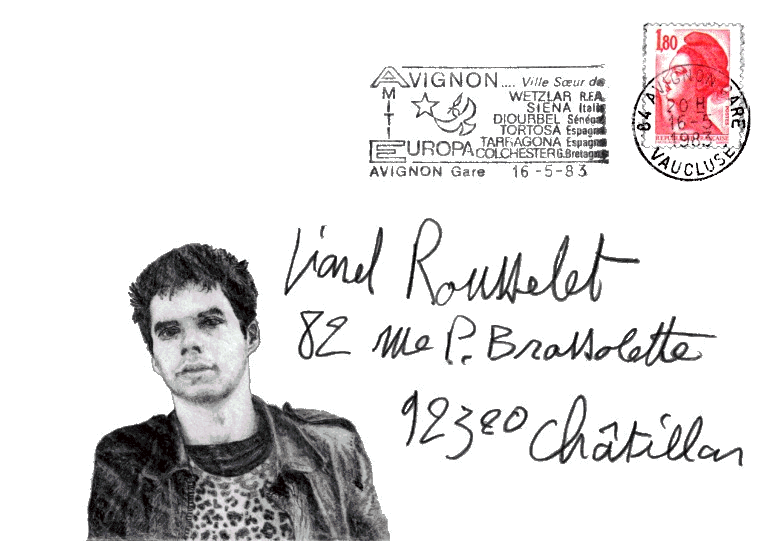 1,80
AVIGNON.... Ville Sœur de
WETZLAR R.F.A.
SIENA Italie
DIOURBEL Sénégal
TORTOSA Espagne
TARRAGONA Espagne
COLCHESTER G.Bretagne
AMITIE
EUROPA
AVIGNON Gare 16-5-83
84 AVIGNON GARE
20 H
16-5
1983
VAUCLUSE
Lionel Rousselet
82 rue P. Brossolette
92320 Châtillon